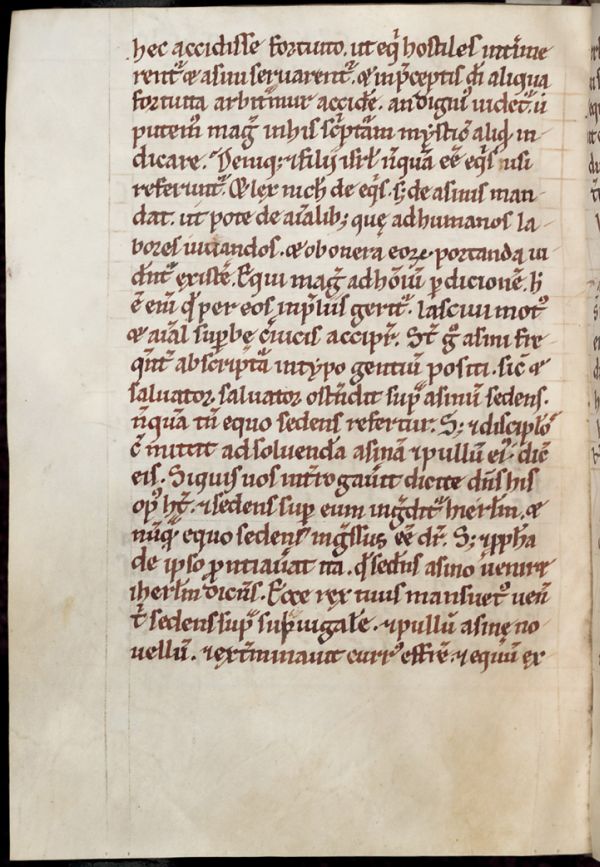 hec accidisse fortuito. ut eq̃ hostiles int̾ime
rent᷑ & asini servarent᷑. & inp̃ceptis dĩ aliqua
fortuita arbitrãmur accide᷑. an dign᷒ videt᷑. ũ
putem᷒ mag̃ in his sc̾ptam mẏstiõ aliq̃d in-
dicare. Deniq; & filij isrl̃ nũquã eẽ eq̃s usi
referunt᷑. & lex nich̃ de eq̃s. s; de asinis man-
dat. ut pote de aĩalib; quę ad humanos la-
bores iuuandos. & ob onera eoꝝ portanda vi
dent᷑ existẽ. Equi mag̃ ad hõĩũ ꝑdicionẽ. h̃
ẽ eñi q̃d per eos inp̃liis gerit᷑. lascivi mot᷒
& aĩal supbe c̾vicis accipr̃. St̃ g̃ asini fre
quẽt᷑ ab sc̾ipt̾a in typo gentiũ positi. sic̃ &
salvator. salvator ostñdit᷑ sup̃ asinũ sedens.
nũquã tñ equo sedens refertur. S; & discipl̃o᷒
c̃ mittit ad solvendã asinã & pullũ ei᷒. dic̃e
eis. Siquis vos int̾rogav̾it dicite dñs his
op᷒ h̃t. & sedens sup̃ eum ing̃dit᷑ hierl̃m. &
nũq̃ equo sedens ing̃ssus eẽ dr̃. S; & ꝓph̃a
de ipso ꝓntiav̾at ita. q̃d sedẽs asino venire
iherl̃m dicẽs. Ecce rex tuus mansuet᷒ ven̾
t̃ sedens sup̃ subiugalẽ. & pullũ asinę no
vellũ. & ext̾minavit curr᷒ effrẽ. & equũ ex